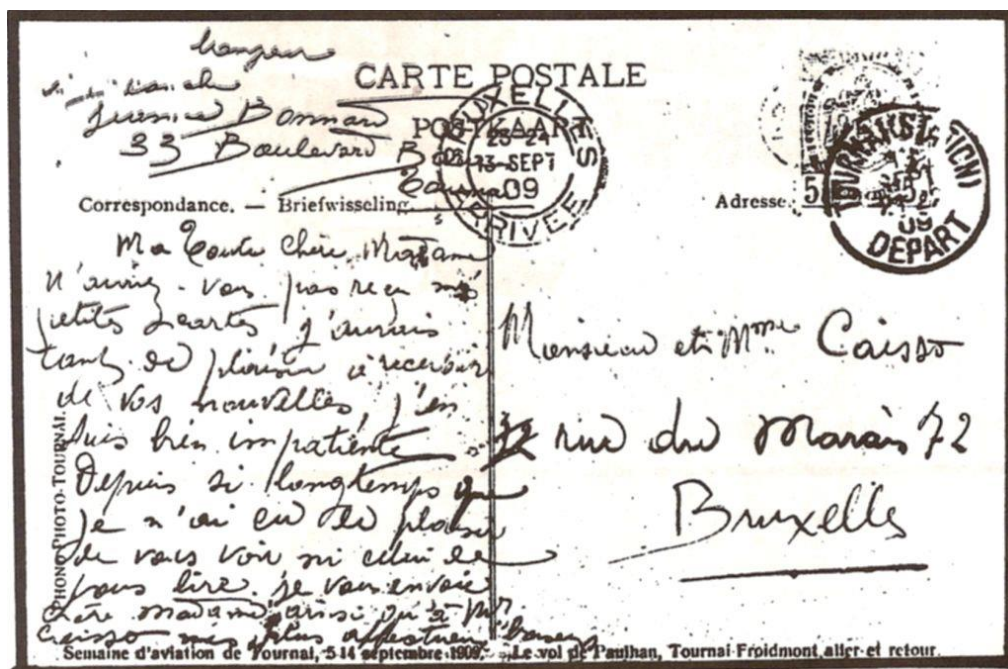 CARTE POSTALE
POSTKAART
Bonnard
33 Boulevard
BRUXELLES
13 SEPT
09
ARRIVEE
5
TOURNAI (STATION)
09
DEPART
Correspondance. — Briefwisseling.
Adresse.
Ma toute Chère Madame
N'auriez-vous pas reçu mes
petites cartes j'aurais
tant de plaisir à recevoir
de vos nouvelles j'en
suis bien impatiente.
Depuis si longtemps que
je n'ai eu le plaisir
de vous voir ni celui de
vous lire. je vous envoie
Chère Madame ainsi qu'à Mr
Caisso mes plus affectueux baisers
Monsieur et Mme Caisso
rue du Marais 72
Bruxelles
PHONO-PHOTO-TOURNAI.
Semaine d'aviation de Tournai, 5-14 septembre 1909. — Le vol de Paulhan, Tournai-Froidmont aller et retour.